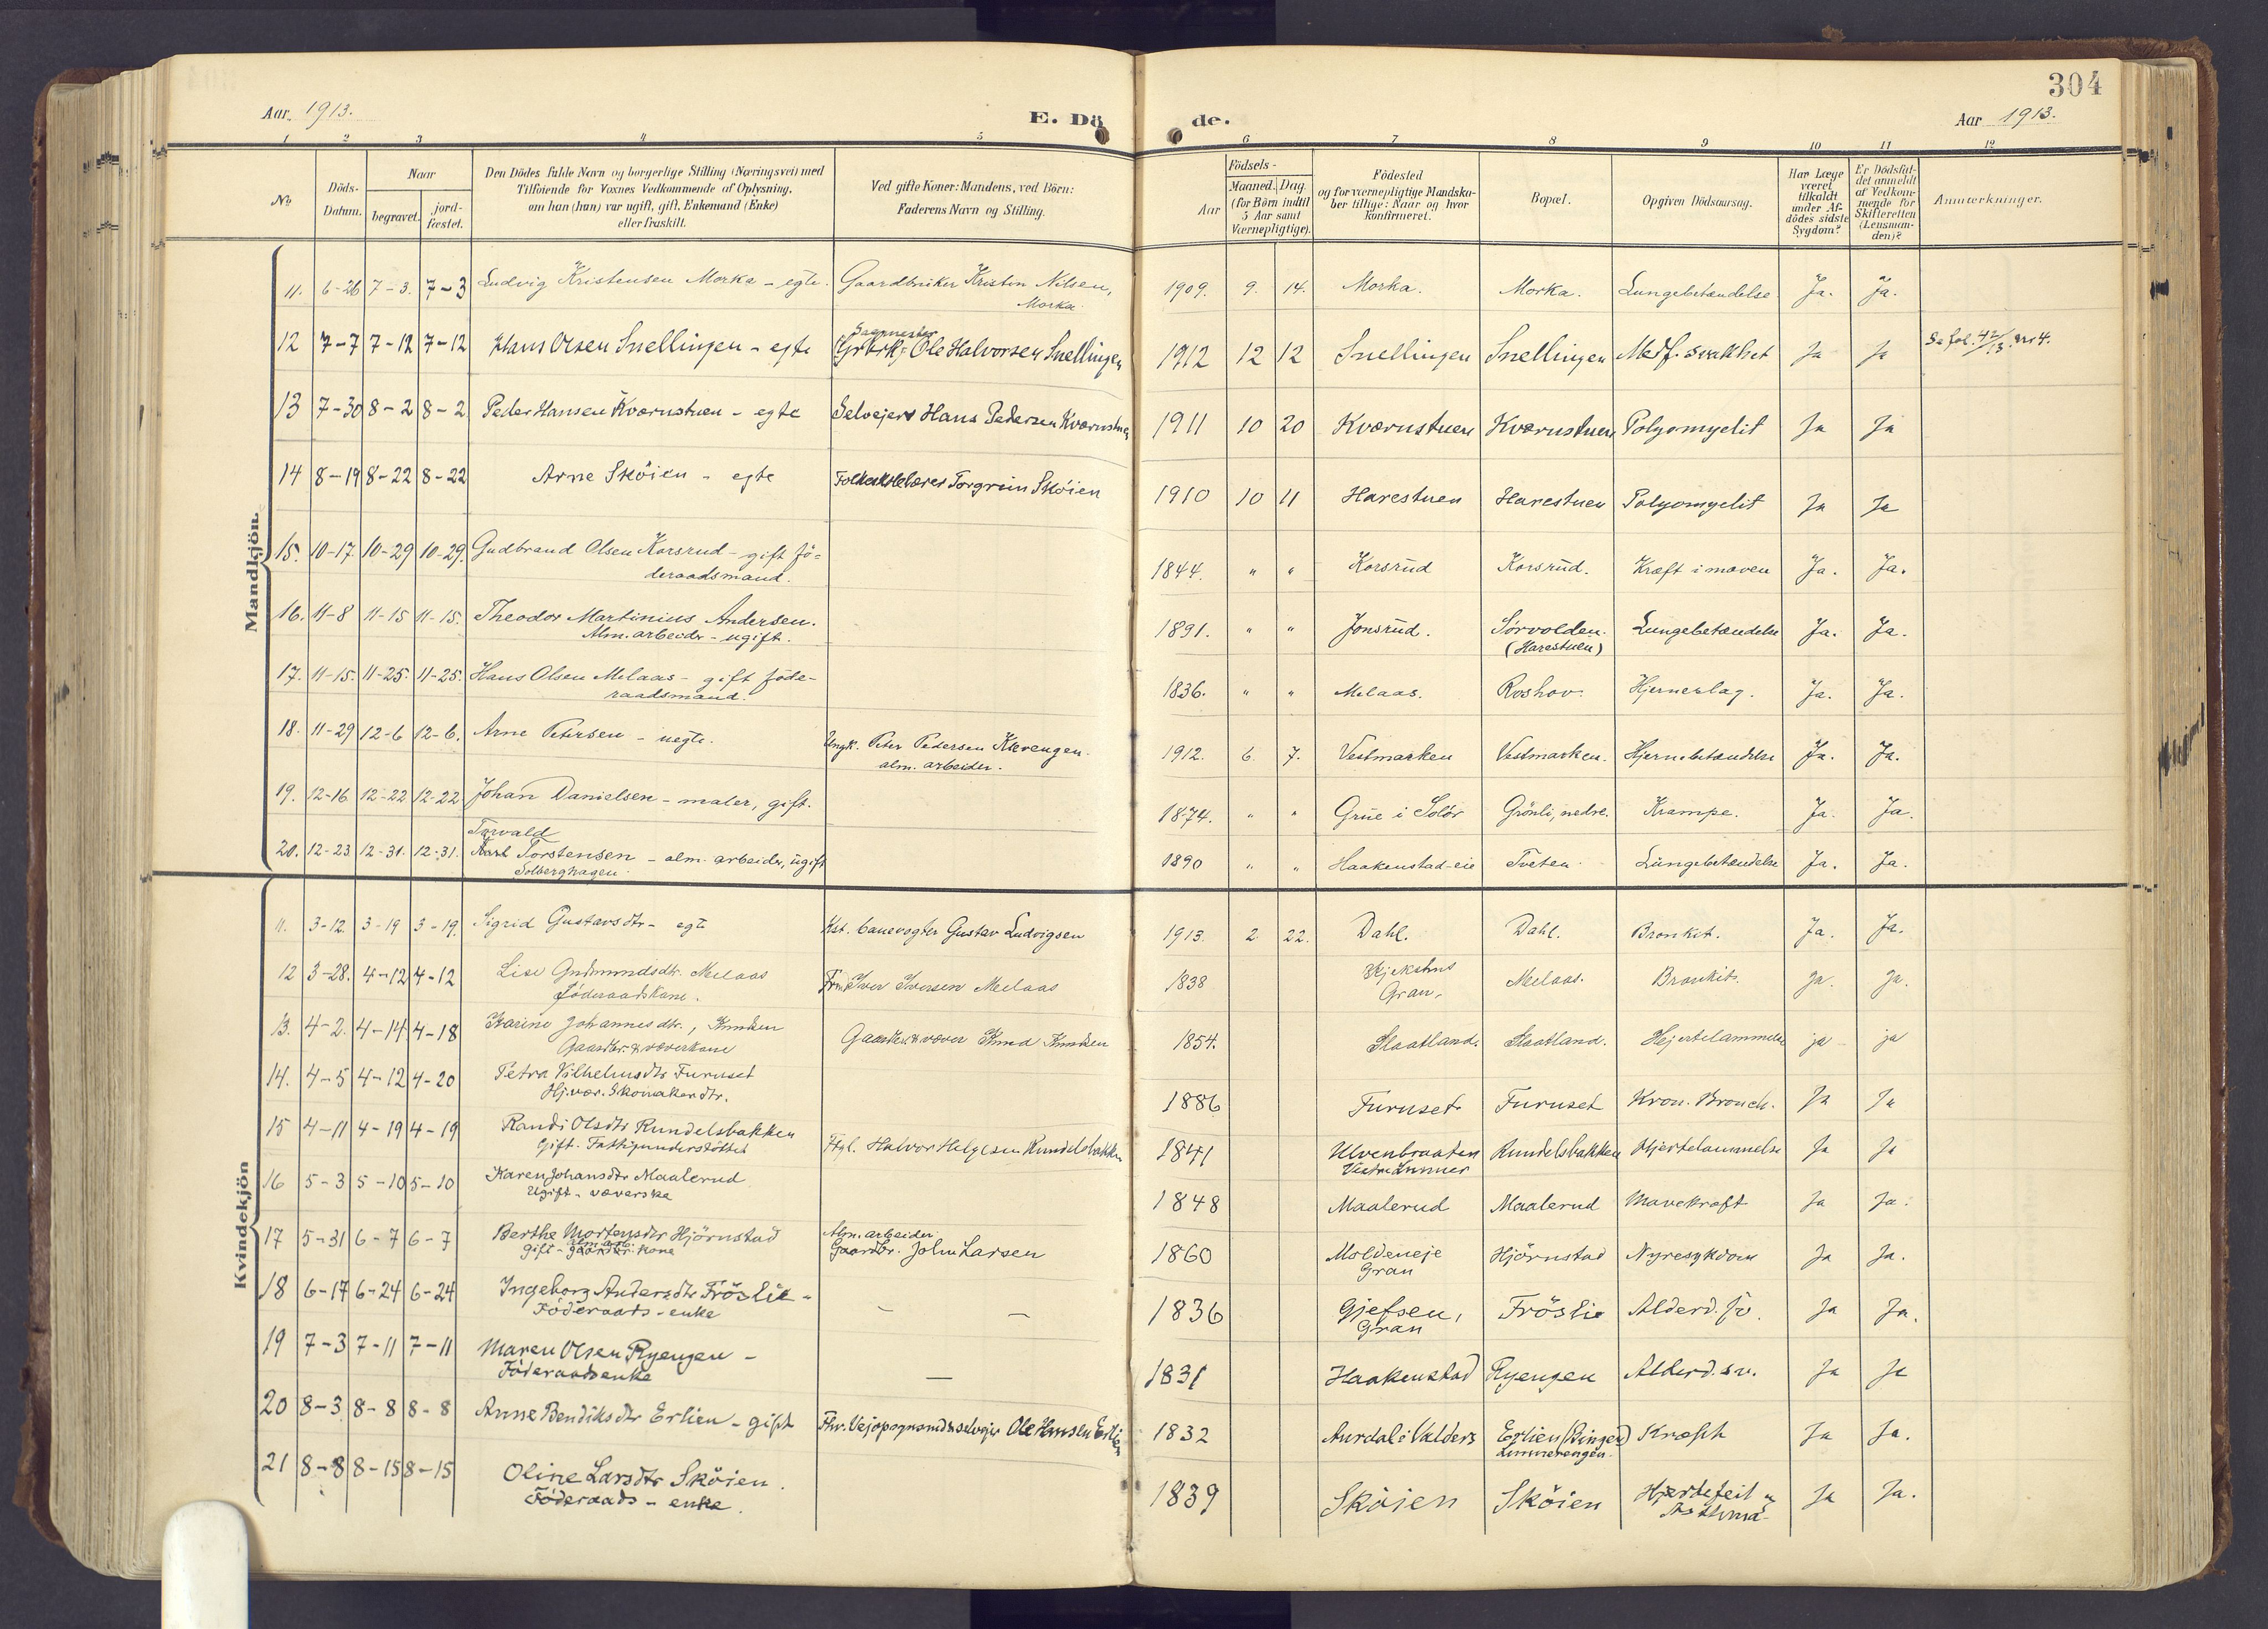 304
Aar 1913.
E. Dö
de.
Aar 1913.
1 2 3 4 5 6 7 8 9 10 11 12
No.
Döds-
Datum.
Naar
begravet.
jord-
fæstet.
Den Dödes fulde Navn og borgerlige Stilling (Næringsvei) med
Tilföiende for Voxnes Vedkommende af Oplysning.
om han (hun) var ugift, gift, Enkemand (Enke)
eller fraskilt.
Ved gifte Koner: Mandens, ved Börn:
Faderens Navn og Stilling.
Födsels-
Aar
Maaned. Dag.
(for Börn indtil
5 Aar samt
Værnepligtige).
Födested
og for værnepligtige Mandska-
ber tillige: Naar og hvor
konfirmeret.
Bopæl.
Opgiven Dödsaarsag.
Har Læge
været
tilkaldt
under Af-
dödes sidste
Sygdom?
Er Dödsfal-
det anmeldt
af Vedkom-
mende for
Skifteretten
(Lensman-
den)?
Anmærkninger.
Mandkjön.
11. 6-26 7-3. 7-3 Ludvig Kristensen Morka - egte. Gaardbruker Kristen Nilsen, 1909. 9. 14. Morka. Morka. Lungebetændelse Ja. Ja.
Morka.
Sagmester
12 7-7 7-12 7-12 Hans Olsen Snellingen - egte Grbrk. Ole Halvorsen Snellingen 1912 12 12 Snellingen Snellingen Medf. svakhet Ja Ja Se fol. 42/13 nr 4.
13 7-30 8-2 8-2 Peder Hansen Kværnstuen - egte Selveier Hans Pedersen Kværnstuen 1911 10 20 Kværnstuen Kværnstuen Polyomyelit Ja Ja
14 8-19 8-22 8-22 Arne Sköien - egte Torgrim Sköien 1910 10 11 Harestuen Harestuen Polyomyelit Ja Ja
15. 10-17 10-29 10-29. Gudbrand Olsen Korsrud - gift fö- 1844. " " Korsrud Korsrud. Kræft i maven Ja. Ja.
deraadsmand.
16. 11-8 11-15 11-15. Theodor Martinius Andersen. 1891. " " Jonsrud. Sørvolden. Lungebetændelse Ja. Ja.
Alm. arbeider - ugift. (Harestuen)
17. 11-15. 11-25. 11-25. Hans Olsen Melaas - gift föde- 1836. " " Melaas. Roshov. Hjerneslag. Ja. Ja.
raadsmand.
18. 11-29 12-6 12-6. Arne Petersen - uegte. Ungk. Peter Pedersen Klevengen. 1912. 6. 7. Vestmarken Vestmarken. Hjernebetændelse Ja. Ja.
alm. arbeider.
19. 12-16 12-22 12-22 Johan Danielsen - maler, gift. 1874. " " Grue i Solör Grönli, nedre. Krampe. Ja. Ja.
Torvald
20. 12-23 12-31. 12-31. Karl Torstensen - alm. arbeider, ugift 1890 " " Haakenstad-eie Tveten Lungebetændelse Ja. Ja.
Solberghagen.
Kvindekjön
11. 3-12 3-19 3-19. Sigrid Gustavsdtr - egte Kst. banevogter Gustav Ludvigsen 1913. 2 22. Dahl. Dahl. Bronkit. Ja. Ja.
12 3-28. 4-12 4-12 Lise Gudmundsdtr. Melaas Iver Iversen Melaas 1838 Gran. Melaas. Bronkit. Ja. Ja.
Föderaadskone.
13. 4-2. 4-14 4-18 Karine Johannesdtr., Knuken Gaardbr. & væver Knud Knuken 1854. Slaatland. Slaatland. Hjertelammelse ja ja
Gaardbr. & væverkone
14. 4-5 4-12 4-20 Petra Vilhelmsdtr Furuset 1886 Furuset Furuset Kron. Bronch. Ja Ja
Hj.vær. Skomakerdtr.
15 4-11 4-19 4-19 Randi Olsdtr Rundelsbakken Ftgl. Halvor Helgesen Rundelsbakken 1841 Ulvenbraaten Rundelsbakken Hjertelammelse Ja Ja
Gift. Fattigunderstöttet Vestre Lunner
16 5-3 5-10 5-10 Karen Johansdtr Maalerud 1848 Maalerud Maalerud Mavekræft Ja Ja.
Ugift - væverske
17 5-31 6-7 6-7 Berthe Mortensdtr Hjörnstad Alm. arbeider 1860 Moldeneje Hjörnstad Nyresykdom Ja Ja.
alm. arb.
gift - gaardbr. kone Gaardbr. John Larsen Gran
18 6-17 6-24 6-24 Ingeborg Andersdtr Fröslie - - - 1836 Gjefsen, Fröslie Alderd. sv. Ja Ja.
Föderaads-enke Gran
19 7-3 7-11 7-11 Maren Olsen Ryengen - — 1831 Haakenstad Ryengen Alderd. sv. Ja Ja
Föderaadsenke
20 8-3 8-8 8-8 Anne Bendiksdtr Erlien - gift Fhv. Vejopsynsmd & selvejer Ole Hansen Erlien 1832 Aurdal i Valders Erlien (Binger) Kræft Ja Ja.
Lunnerengen.
21 8-8 8-15 8-15 Oline Larsdtr Sköien. 1839 Sköien Sköien Hjertefeil & Ja Ja.
Föderaads-enke. Asthma